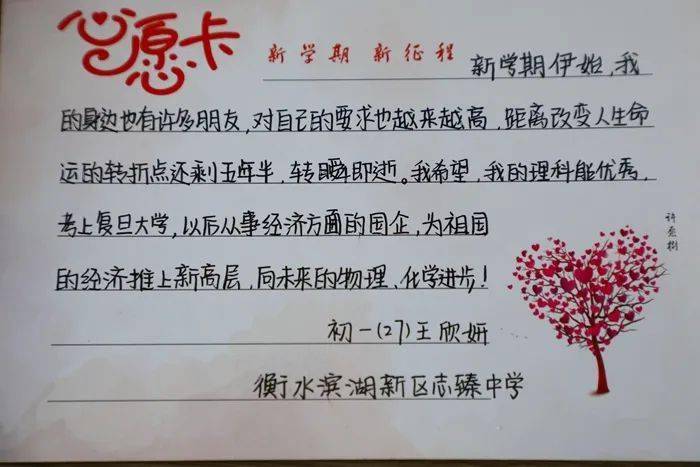 心愿卡
新学期 新征程
新学期伊始,我
的身边也有许多朋友,对自己的要求也越来越高,距离改变人生命
运的转折点还剩五年半,转瞬即逝。我希望,我的理科能优秀,
考上复旦大学,以后从事经济方面的国企,为祖国
的经济推上新高层,向未来的物理、化学进步!
初一(27)王欣妍
衡水滨湖新区志臻中学
许愿树